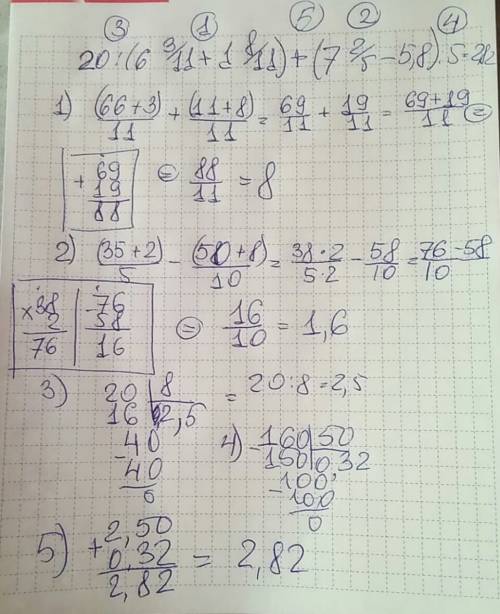 ③ ① ⑤ ② ④
20:(6 3/11 + 1 8/11) + (7 2/5 - 5,8) : 5 = 2,82
1) (66+3)/11 + (11+8)/11 = 69/11 + 19/11 = (69+19)/11 =
+ 69
19
88
= 88/11 = 8
2) (35+2)/5 - (50+8)/10 = (38·2)/(5·2) - 58/10 = (76-58)/10
×38
2
76
-76
58
16
= 16/10 = 1,6
3) 20 | 8
16 | 2,5
-40
40
0
= 20:8 = 2,5
4) -160 | 50
150 | 0,32
-100
100
0
5) + 2,50
0,32
2,82
= 2,82